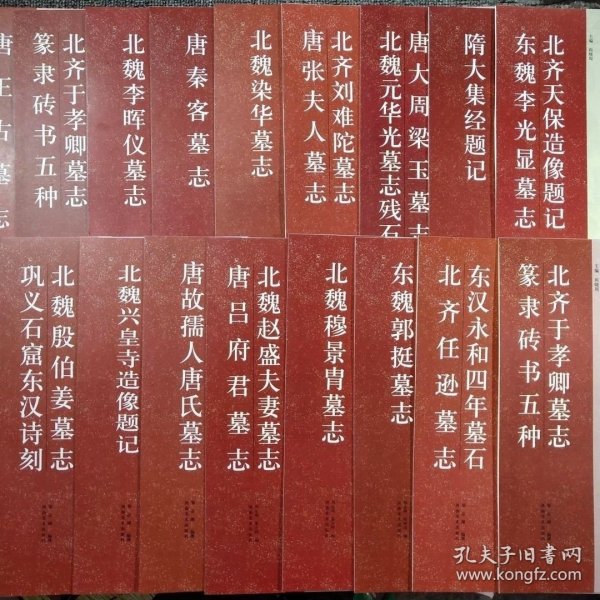 唐王古墓志
北齐于孝卿墓志
篆隶砖书五种
北魏李晖仪墓志
唐秦客墓志
北魏染华墓志
北齐刘难陀墓志
唐张夫人墓志
唐大周梁玉墓志
北魏元华光墓志残石
隋大集经题记
北齐天保造像题记
东魏李光显墓志
主编
北魏殷伯姜墓志
巩义石窟东汉诗刻
北魏兴皇寺造像题记
唐故孺人唐氏墓志
北魏赵盛夫妻墓志
唐吕府君墓志
北魏穆景胄墓志
东魏郭挺墓志
东汉永和四年墓石
北齐任逊墓志
北齐于孝卿墓志
篆隶砖书五种
主编
孔夫子旧书网
www.kongfz.com